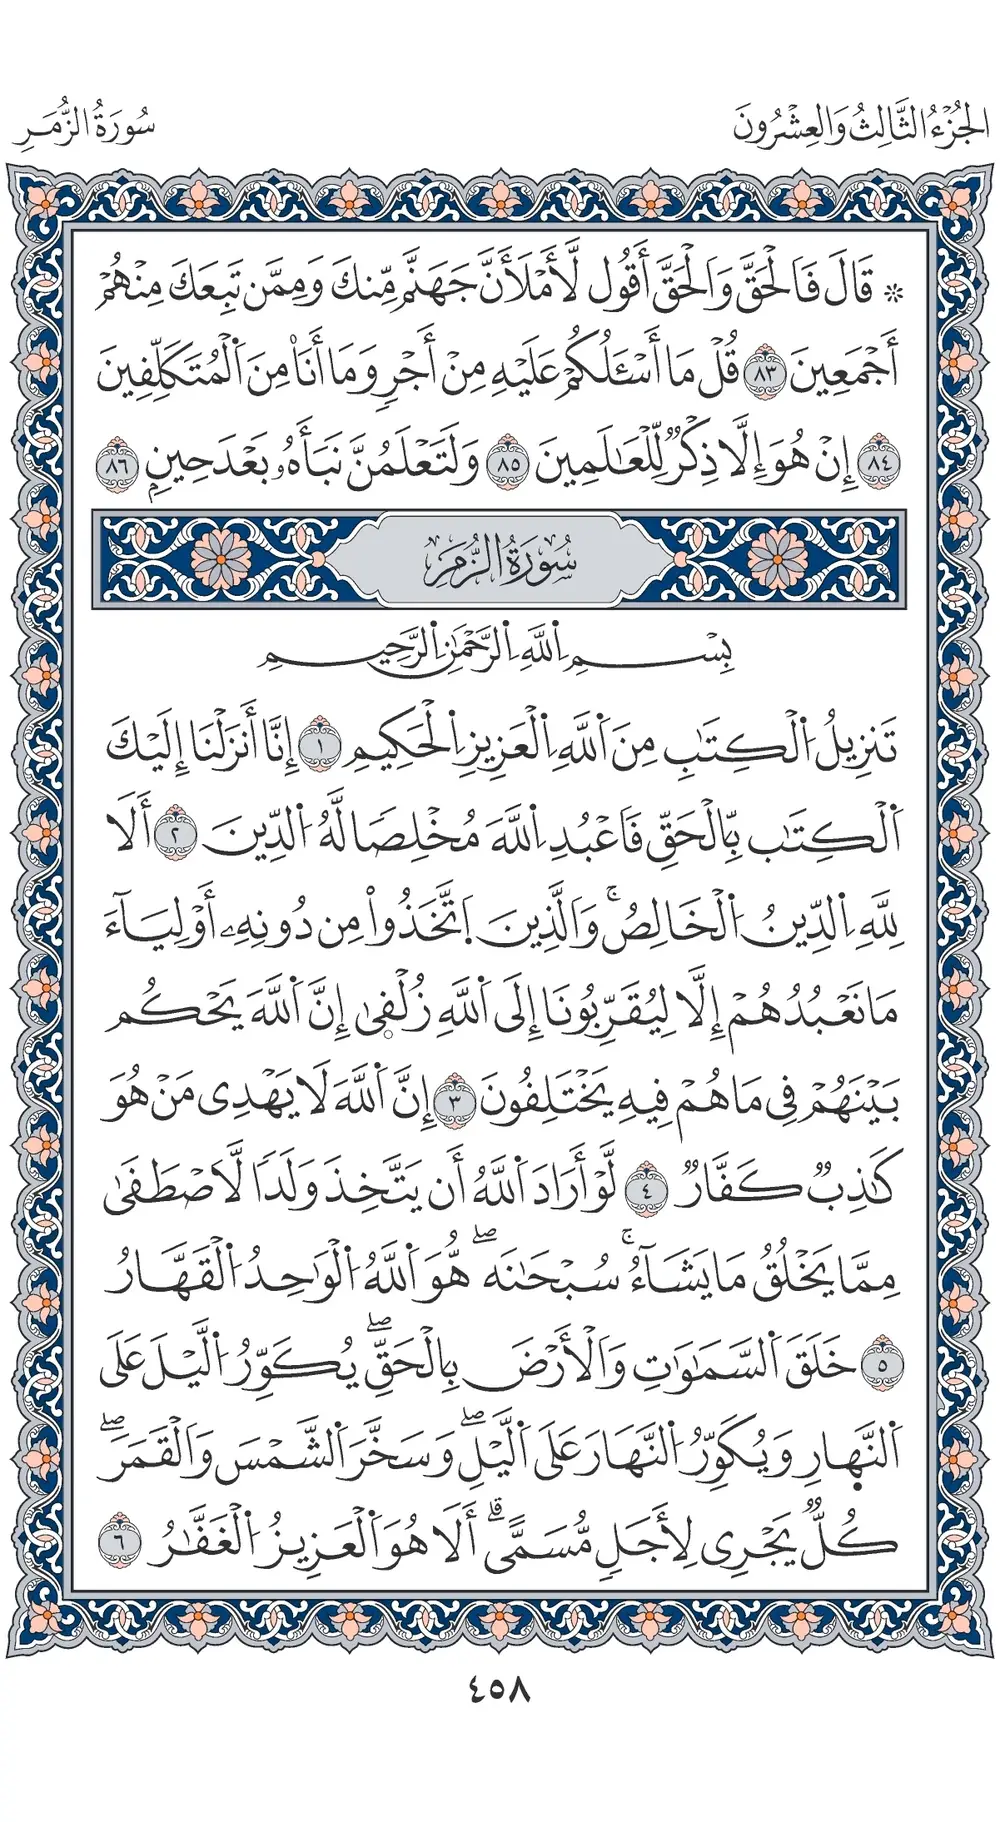 الجُزْءُ الثَّالِثُ وَالعِشْرُونَ
سُورَةُ الزُّمَرِ
* قَالَ فَالْحَقَّ وَالْحَقَّ أَقُول لَّأَمْلَأَنَّ جَهَنَّم مِّنكَ وَمِمَّن تَبِعَكَ مِنْهُمْ
أَجْمَعِينَ ٨٣ قُلْ مَا أَسْـَٔلُكُمْ عَلَيْهِ مِنْ أَجْرٖ وَمَا أَنَا۠ مِنَ اَلْمُتَكَلِّفِينَ
٨٤ إِنْ هُوَ إِلَّا ذِكْرٞ لِّلْعَٰلَمِينَ ٨٥ وَلَتَعْلَمُنَّ نَبَأَهُۥ بَعْدَ حِينِۢ ٨٦
سُورَةُ الزُّمَرِ
بِسْمِ اِللَّهِ اِلرَّحْمَٰنِ اِلرَّحِيمِ
تَنزِيلُ اُلْكِتَٰبِ مِنَ اَللَّهِ اِلْعَزِيزِ اِلْحَكِيمِ ١ إِنَّا أَنزَلْنَا إِلَيْكَ
اَلْكِتَٰب بِّالْحَقِّ فَاعْبُدِ اِللَّهَ مُخْلِصٗا لَّهُ اُلدِّينَ ٢ أَلَا
لِلَّهِ اِلدِّينُ اُلْخَالِصُۚ وَالَّذِينَ اَتَّخَذُواْ مِن دُونِهِۦ أَوْلِيَآءَ
مَا نَعْبُدُهُمْ إِلَّا لِيُقَرِّبُونَا إِلَى اَللَّهِ زُلْفۭىٰ إِنَّ اَللَّهَ يَحْكُم
بَيْنَهُمْ فِى مَا هُمْ فِيهِ يَخْتَلِفُونَ ٣ إِنَّ اَللَّهَ لَا يَهْدِى مَنْ هُوَ
كَٰذِبٞ كَفَّارٞ ٤ لَّوْ أَرَادَ اَللَّهُ أَن يَتَّخِذَ وَلَدٗا لَّاصْطَفَىٰ
مِمَّا يَخْلُقُ مَا يَشَآءُۚ سُبْحَٰنَهۖ هُّوَ اَللَّهُ اُلْوَٰحِدُ اُلْقَهَّارُ
٥ خَلَقَ اَلسَّمَٰوَٰتِ وَالْأَرْضَ بِالْحَقِّۖ يُكَوِّرُ اُلَّيْلَ عَلَى
اَلنَّهۭارِ وَيُكَوِّرُ اُلنَّهَارَ عَلَى اَلَّيْلِۖ وَسَخَّرَ اَلشَّمْسَ وَالْقَمَرَۖ
كُلّٞ يَجْرِى لِأَجَلٖ مُّسَمًّىۗ أَلَا هُوَ اَلْعَزِيزُ اُلْغَفَّٰرُ ٦
٤٥٨